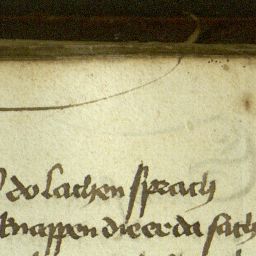 do lachen sprach
knappen die er da sach